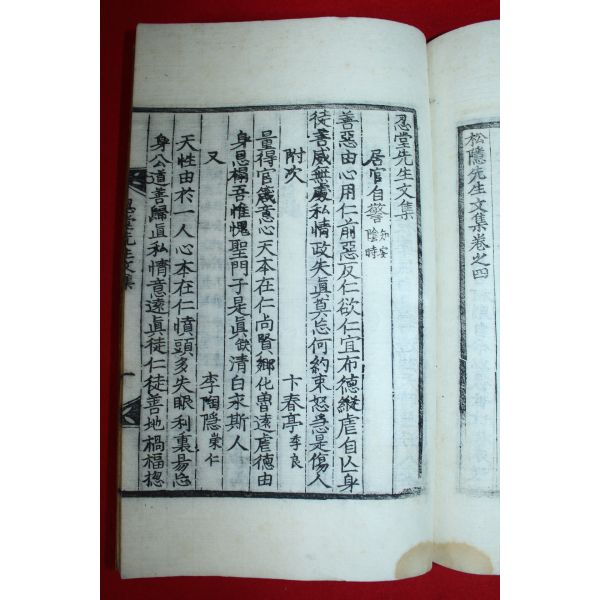 松隱先生文集卷之四
忍堂先生文集
居官自警 知安陰時
善惡由心用仁前惡反仁欲仁宜布德縱虐自亡身
徒善威無處私情政失眞莫忘何約束怒急是傷人
附次 卞春亭 季良
量得官箴意心天本在仁尚賢鄕化曺遠虐德由
身思楊吾惟愧聖門子是眞欲清白求斯人
又 李陶隱 崇仁
天性由於一人心本在仁憤頭多失眼利裏易忘
身公道善歸眞私情意遠眞徒仁徒善地禍福揔
忍堂先生文集 一